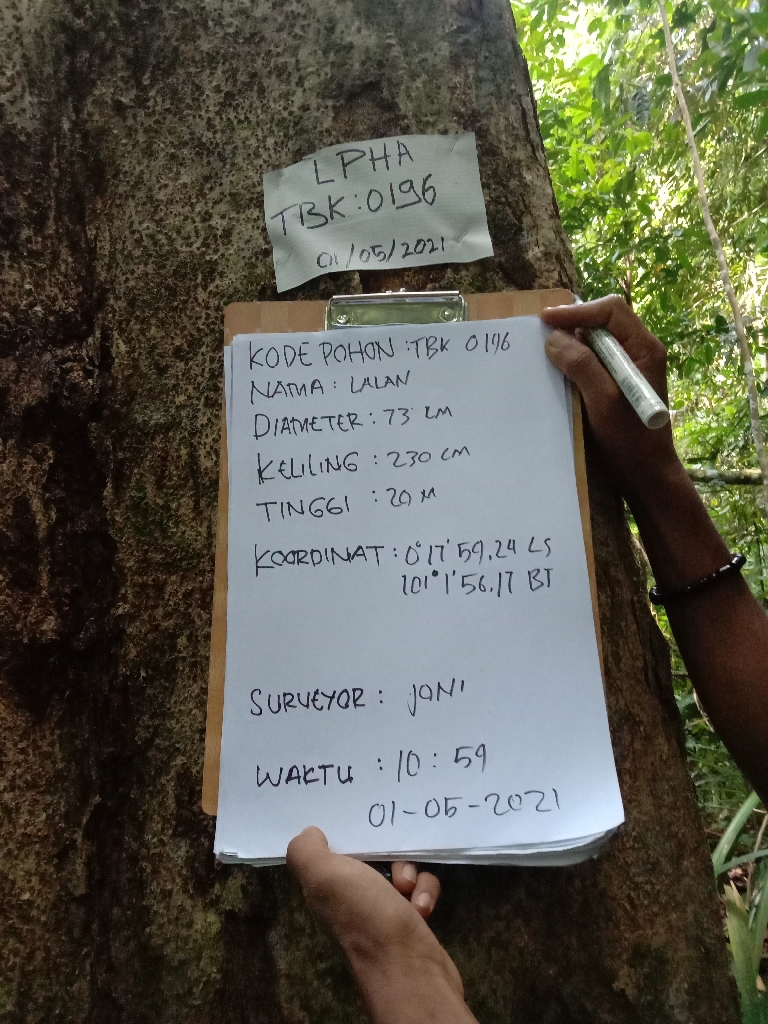 LPHA
TBK : 0196
01/05/2021
KODE POHON : TBK 0196
NAMA : LALAN
DIAMETER : 73 CM
KELILING : 230 CM
TINGGI : 20 M
KOORDINAT : 0° 17' 59,24 LS
101° 1' 56,17 BT
SURVEYOR : JONI
WAKTU : 10 : 59
01-05-2021